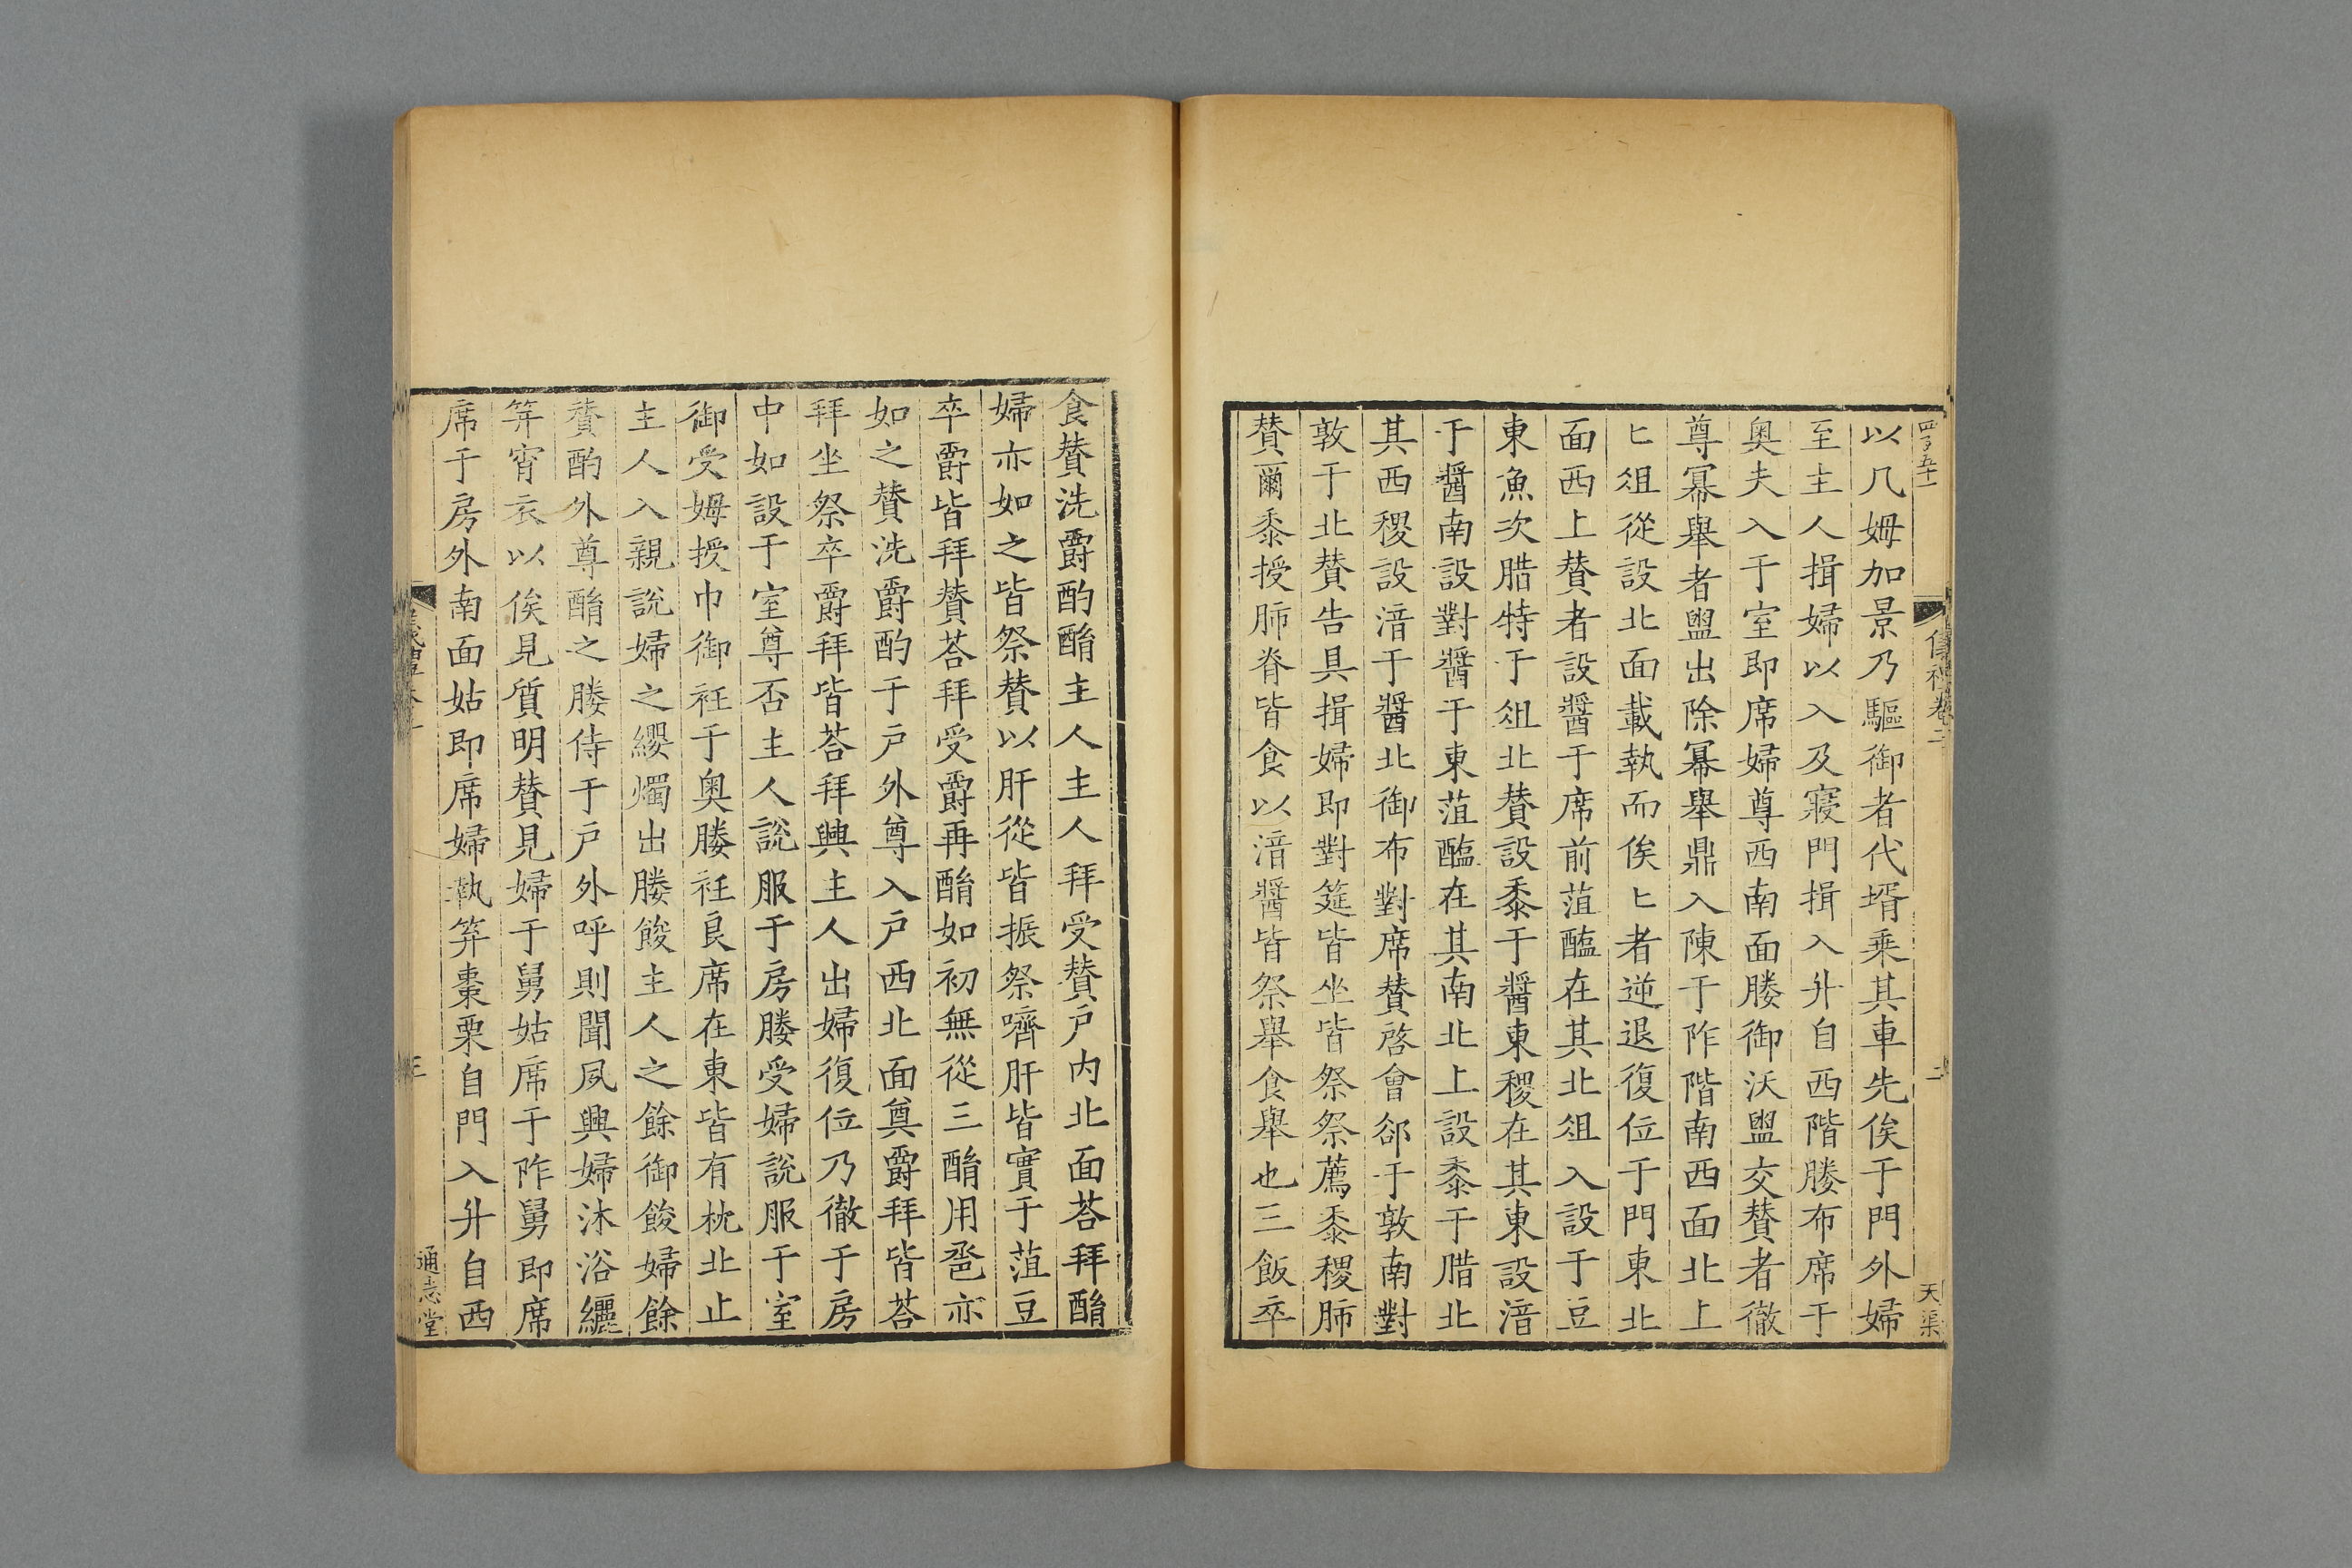 以几姆加景乃驅御者代壻乘其車先俟于門外婦
至主人揖婦以入及寢門揖入升自西階媵布席于
奧夫入于室即席婦尊西南面媵御沃盥交賛者徹
尊冪舉者盥出除冪舉鼎入陳于阼階南西面北上
匕俎從設北面載執而俟匕者逆退復位于門東北
面西上賛者設醬于席前菹醢在其北俎入設于豆
東魚次腊特于俎北賛設黍于醬東稷在其東設湆
于醬南設對醬于東菹醢在其南北上設黍于腊北
其西稷設湆于醬北御布對席賛啓會郤于敦南對
敦于北賛告具揖婦即對筵皆坐皆祭祭薦黍稷肺
賛爾黍授肺脊皆食以湆醬皆祭舉食舉也三飯卒
儀禮卷二
二
天渠
食賛洗爵酌酳主人主人拜受賛户内北面荅拜酳
婦亦如之皆祭賛以肝從皆振祭嚌肝皆實于菹豆
卒爵皆拜賛荅拜受爵再酳如初無從三酳用巹亦
如之賛洗爵酌于户外尊入户西北面奠爵拜皆荅
拜坐祭卒爵拜皆荅拜興主人出婦復位乃徹于房
中如設于室尊否主人說服于房媵受婦說服于室
御受姆授巾御衽于奧媵衽良席在東皆有枕北止
主人入親說婦之纓燭出媵餕主人之餘御餕婦餘
賛酌外尊酳之媵侍于户外呼則聞夙興婦沐浴纚
笄宵衣以俟見質明賛見婦于舅姑席于阼舅即席
席于房外南面姑即席婦執笲棗栗自門入升自西
三
通志堂